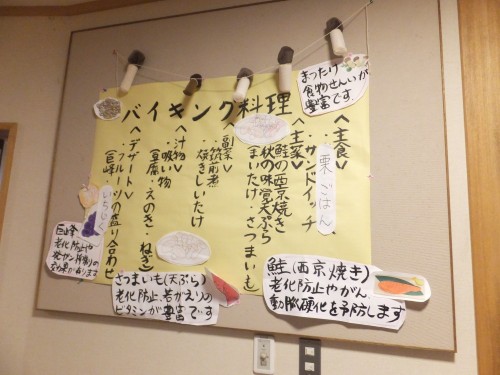 バイキング料理
<主食>
・サンドイッチ
栗ごはん
<主菜>
・鮭の西京焼き
・秋の味覚天ぷら
(まいたけ、さつまいも)
<副菜>
・筑前煮
・焼きしいたけ
<汁物>
・吸い物
(豆腐・えのき・ねぎ)
<デザート>
・フルーツの盛り合わせ
(巨峰
いちじく
まつたけ
食物せんいが
豊富です。
巨峰
老化防止や
さつまいも(天ぷら)
老化防止、若がえりの
ビタミンが豊富です
鮭(西京焼き)
老化防止やがん
動脈硬化を予防します